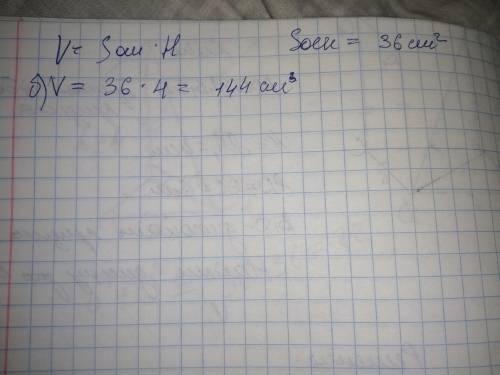 V = Sосн · H Sосн = 36 см²
б) V = 36 · 4 = 144 см³